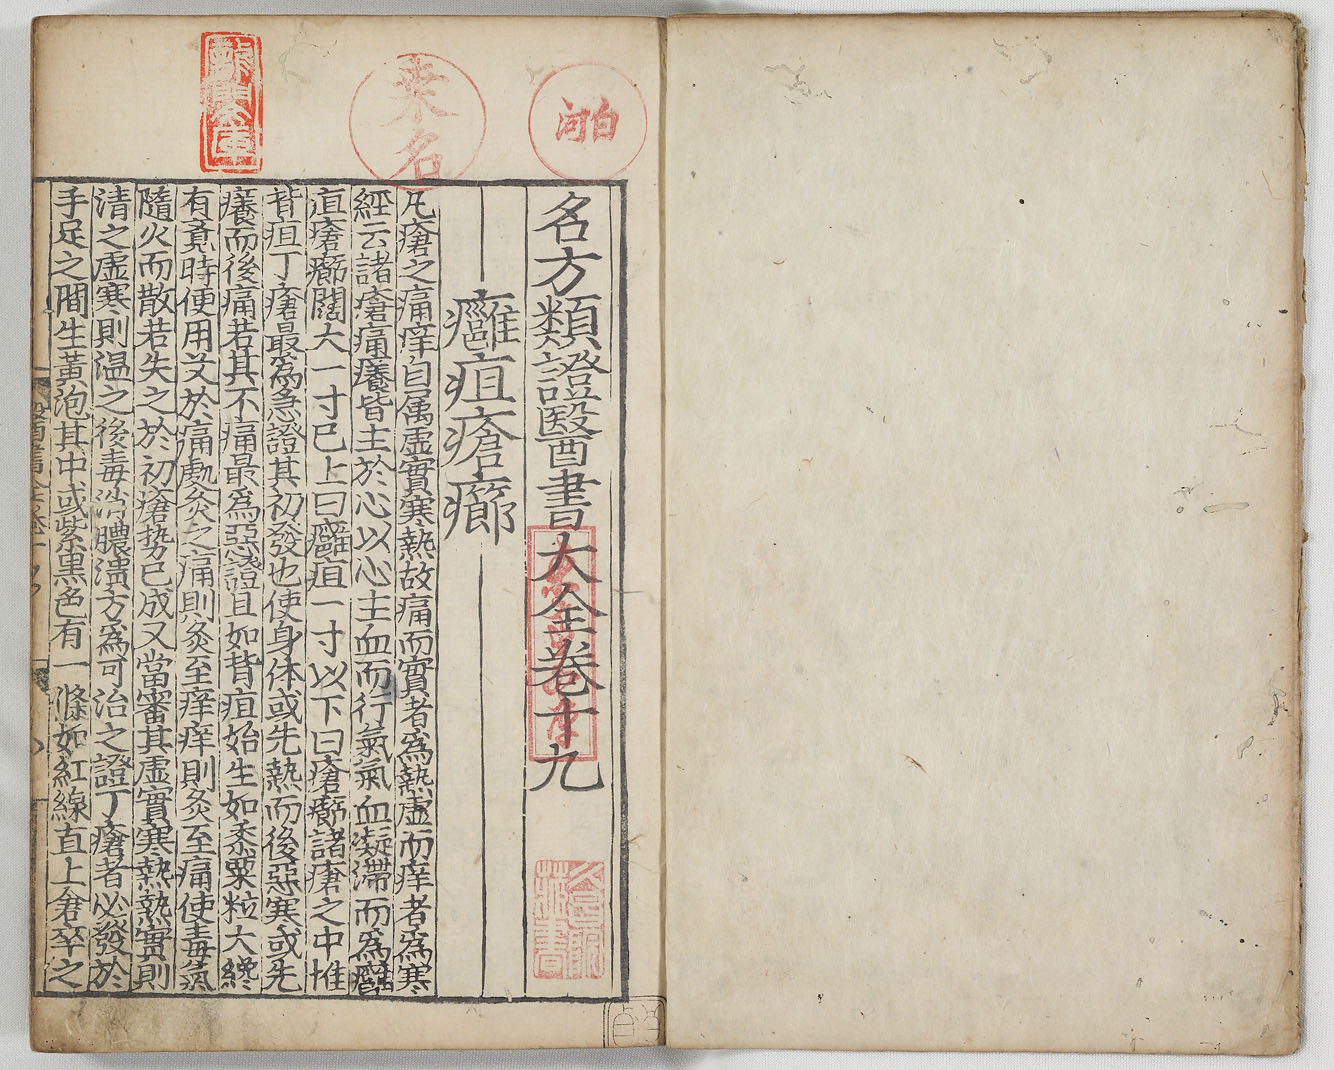 白河
桑名
名方類證醫書大全卷十九
癰疽瘡癤
凡瘡之痛痒自属虛實寒熱故痛而實者爲熱虛而痒者爲寒
經云諸瘡痛癢皆主於心以心主血而行氣氣血凝滞而爲癰
疽瘡癤闊大一寸已上曰癰疽一寸以下曰瘡癤諸瘡之中惟
背疽丁瘡最爲急證其初發也使身体或先熱而後惡寒或先
癢而後痛若其不痛最爲惡證且如背疽始生如黍粟粒大纔
有覔時便用艾於痛處灸之痛則灸至痒痒則灸至痛使毒氣
隨火而散若失之於初瘡势已成又當審其虛實寒熱熱實則
清之虛寒則温之後毒消膿潰方爲可治之證丁瘡者必發於
手足之間生黃泡其中或紫黒色有一條如紅線直上倉卒之